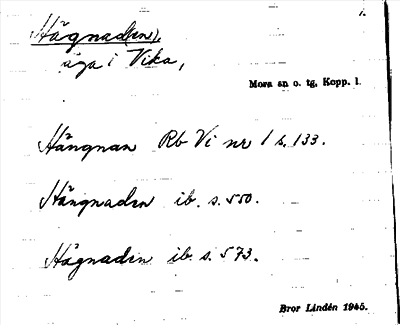 1.
Hägnad(en),
äga i Vika,
Mora sn o. tg, Kopp. l.
Hängnan Rb Vi nr 1 s. 133.
Hängnaden ib. s. 550.
Hägnaden ib. s. 573.
Bror Lindén 1945.